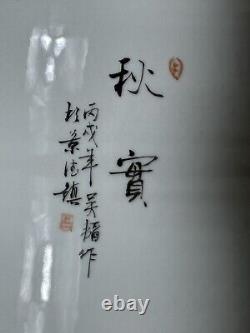 秋實
丙戌年吴楷作
於景德鎮